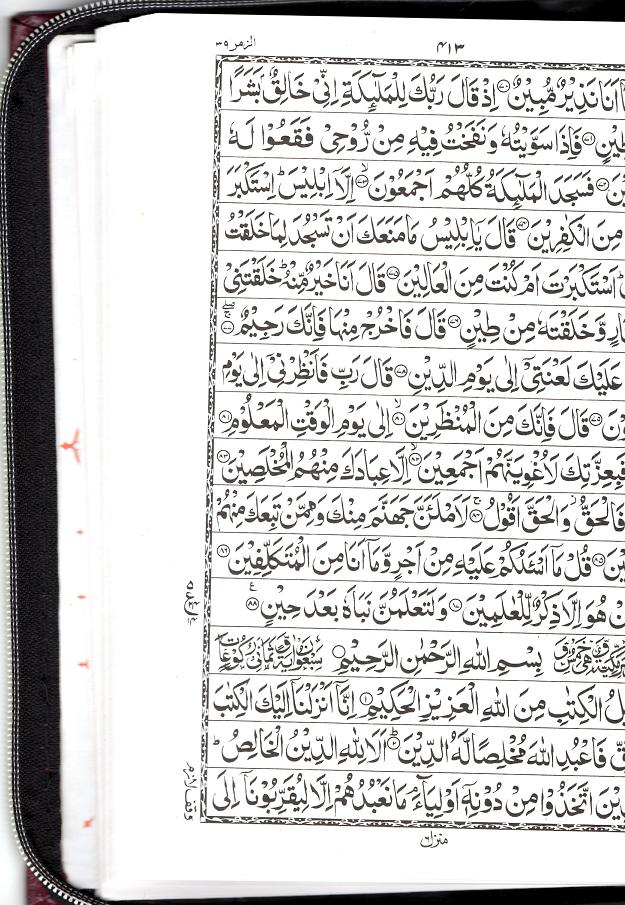 الزمر ٣٩
٤١٣
اَنَا نَذِيْرٌ مُّبِيْنٌ ﴿٧٠﴾ اِذْ قَالَ رَبُّكَ لِلْمَلٰٓئِكَةِ اِنِّيْ خَالِقٌۢ بَشَرًا
طِيْنٍ ﴿٧١﴾ فَاِذَا سَوَّيْتُهٗ وَنَفَخْتُ فِيْهِ مِنْ رُّوْحِيْ فَقَعُوْا لَهٗ
ﻳْنَ ﴿٧٢﴾ فَسَجَدَ الْمَلٰٓئِكَةُ كُلُّهُمْ اَجْمَعُوْنَ ﴿٧٣﴾ اِلَّاۤ اِبْلِيْسَ ؕ اِسْتَكْبَرَ
مِنَ الْكٰفِرِيْنَ ﴿٧٤﴾ قَالَ يٰۤاِبْلِيْسُ مَا مَنَعَكَ اَنْ تَسْجُدَ لِمَا خَلَقْتُ
اَسْتَكْبَرْتَ اَمْ كُنْتَ مِنَ الْعَالِيْنَ ﴿٧٥﴾ قَالَ اَنَا خَيْرٌ مِّنْهُ ؕ خَلَقْتَنِيْ
ارٍ وَّخَلَقْتَهٗ مِنْ طِيْنٍ ﴿٧٦﴾ قَالَ فَاخْرُجْ مِنْهَا فَاِنَّكَ رَجِيْمٌ ﴿٧٧﴾
عَلَيْكَ لَعْنَتِيْۤ اِلٰى يَوْمِ الدِّيْنِ ﴿٧٨﴾ قَالَ رَبِّ فَاَنْظِرْنِيْۤ اِلٰى يَوْمِ
وْنَ ﴿٧٩﴾ قَالَ فَاِنَّكَ مِنَ الْمُنْظَرِيْنَ ﴿٨٠﴾ اِلٰى يَوْمِ الْوَقْتِ الْمَعْلُوْمِ ﴿٨١﴾
فَبِعِزَّتِكَ لَاُغْوِيَنَّهُمْ اَجْمَعِيْنَ ﴿٨٢﴾ اِلَّا عِبَادَكَ مِنْهُمُ الْمُخْلَصِيْنَ ﴿٨٣﴾
فَالْحَقُّ وَالْحَقَّ اَقُوْلُ ﴿٨٤﴾ لَاَمْلَـَٔنَّ جَهَنَّمَ مِنْكَ وَمِمَّنْ تَبِعَكَ مِنْهُمْ
ﻳْنَ ﴿٨٥﴾ قُلْ مَاۤ اَسْـَٔلُكُمْ عَلَيْهِ مِنْ اَجْرٍ وَّمَاۤ اَنَا مِنَ الْمُتَكَلِّفِيْنَ ﴿٨٦﴾
نْ هُوَ اِلَّا ذِكْرٌ لِّلْعٰلَمِيْنَ ﴿٨٧﴾ وَلَتَعْلَمُنَّ نَبَاَهٗ بَعْدَ حِيْنٍ ﴿٨٨﴾
بِسْمِ اللّٰهِ الرَّحْمٰنِ الرَّحِيْمِ
ﻳْلُ الْكِتٰبِ مِنَ اللّٰهِ الْعَزِيْزِ الْحَكِيْمِ ﴿١﴾ اِنَّاۤ اَنْزَلْنَاۤ اِلَيْكَ الْكِتٰبَ
قِّ فَاعْبُدِ اللّٰهَ مُخْلِصًا لَّهُ الدِّيْنَ ﴿٢﴾ اَلَا لِلّٰهِ الدِّيْنُ الْخَالِصُ ؕ
ﻳْنَ اتَّخَذُوْا مِنْ دُوْنِهٖۤ اَوْلِيَآءَ ۘ مَا نَعْبُدُهُمْ اِلَّا لِيُقَرِّبُوْنَاۤ اِلَى
منزل ٦